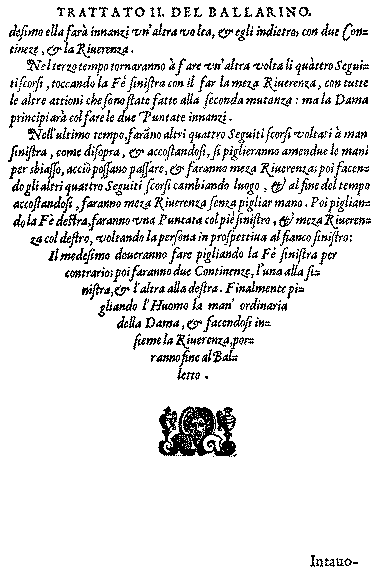 TRATTATO II. DEL BALLARINO.
desimo ella farà innanzi vn'altra volta, & egli indietro; con due Con-
tineze, & la Riuerenza.
Nel terzo tempo tornaranno à fare vn'altra volta li quattro Segui-
ti scorsi, toccando la Fè sinistra con il far la meza Riuerenza, con tutte
le altre attioni che sono state fatte alla seconda mutanza: ma la Dama
principiarà col fare le due Puntate innanzi.
Nell'ultimo tempo, farāno altri quattro Seguiti scorsi voltati à man
sinistra, come di sopra, & accostandosi, si piglieranno amendue le mani
per sbiasso, acciò possano passare, & faranno meza Riuerenza; poi facen-
do gli altri quattro Seguiti scorsi cambiando luogo, & al fine del tempo
accostandosi, faranno meza Riuerenza senza pigliar mano. Poi piglian-
do la Fè destra, faranno vna Puntata col piè sinistro, & meza Riueren-
za col destro, voltando la persona in prospettiua al fianco sinistro:
Il medesimo doueranno fare pigliando la Fè sinistra per
contrario; poi faranno due Continenze, l'una alla si-
nistra, & l'altra alla destra. Finalmente pi-
gliando l'Huomo la man' ordinaria
della Dama, & facendosi in-
sieme la Riuerenza, por-
ranno fine al Bal-
letto.
Intauo-